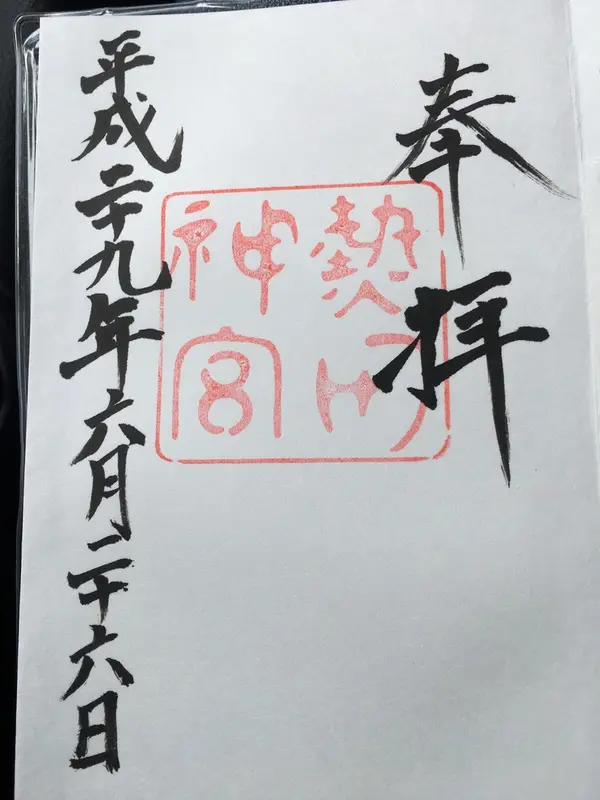 奉拝
熱田
神宮
平成二十九年六月二十六日